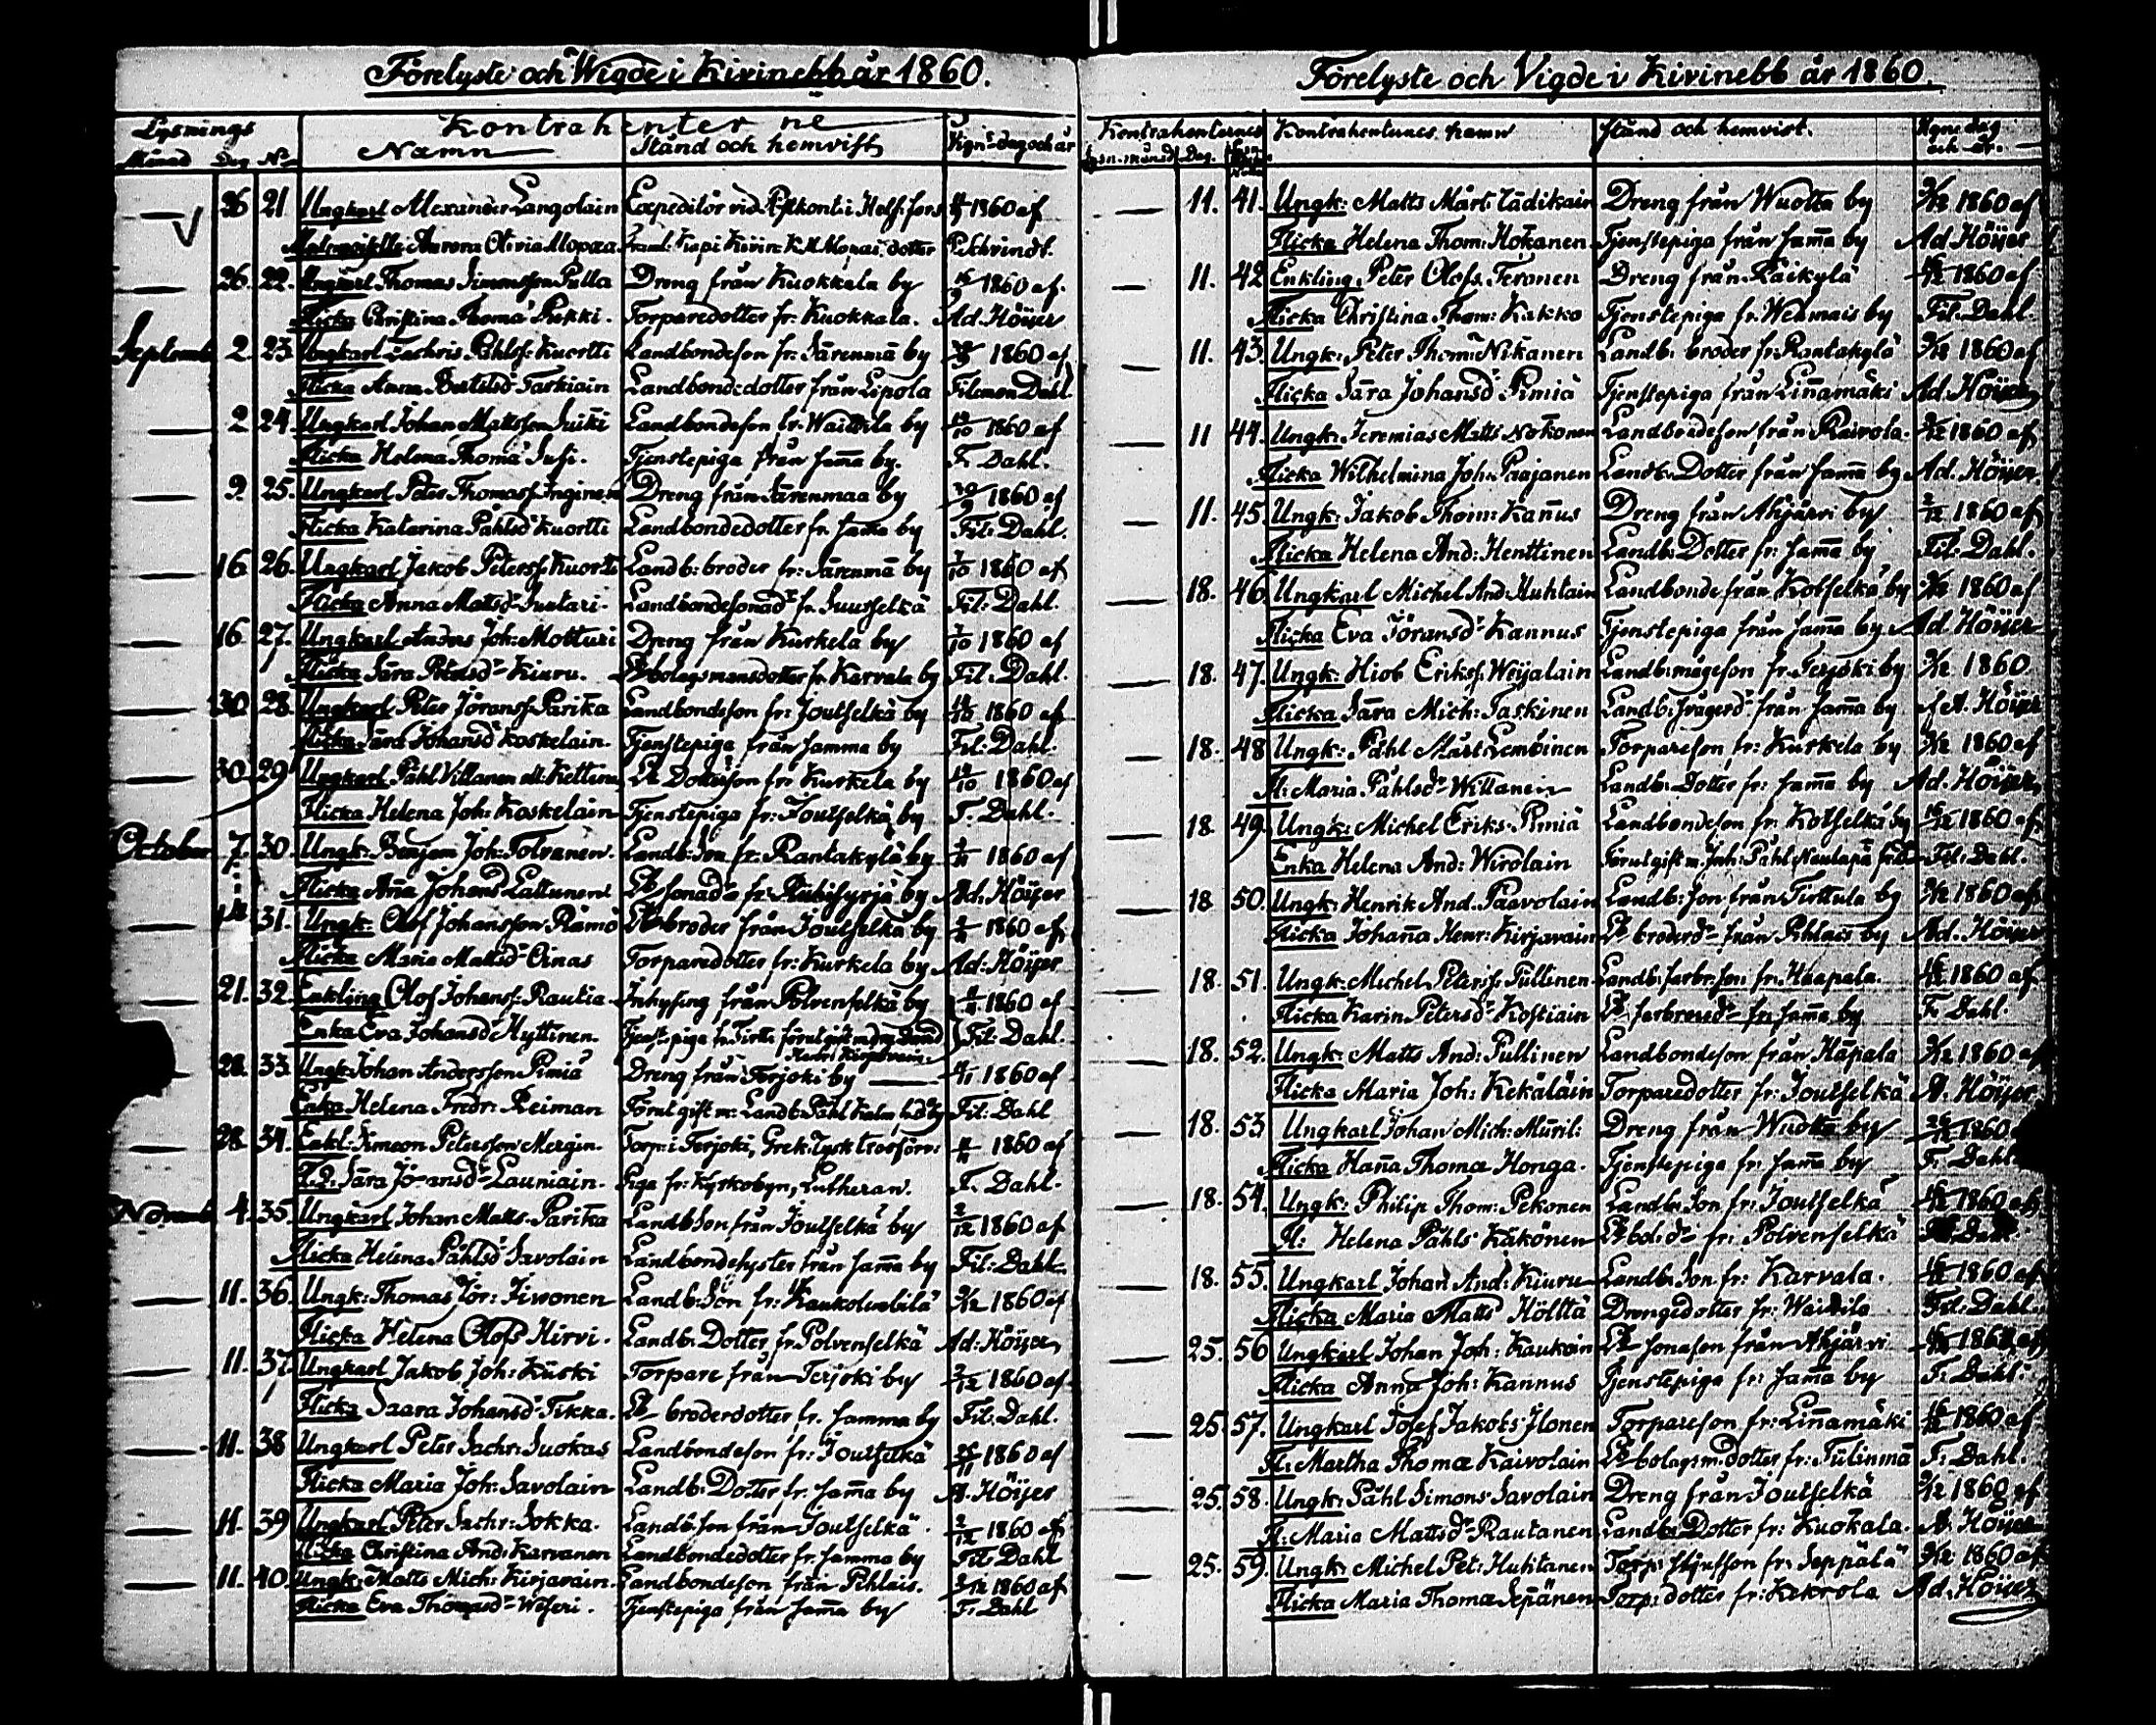 Förelyste och Wigde i Kivinebb år 1860.
Lysnings Kontrahenterne
Månad Dag No Namn Stånd och hemvist Vign:s dag och år
26 21 Ungkarl Alexander Langolain Expeditör vid Postkont: i Helsf:fors 1860 af
Mademoiselle Aurora Olivia Alopæa Kivin: Alopæi dotter P. Schvindt.
26 22. Ungkarl Thomas Simonsson Pulla Dreng från Kuokkala by 1860 af
Flicka Christina Thomæ Pukki. Torparedotter fr: Kuokkala. Ad. Höijer
Septemb 2 23. Ungkarl Zachris Påhlss: Kuortti Landbondeson fr: Särenmä by 1860 af
Flicka Anna Bertilsdr Taskiain Landbond: dotter från Lipola Filemon Dahl.
2 24. Ungkarl Johan Mattsson Suiki Landbondeson fr. Waittila by 1860 af
Flicka Helena Thomæ Susi. Tjenstepiga från samma by. F. Dahl.
9 25. Ungkarl Peter Thomass: Inginen Dreng från Särenmaa by 1860 af
Flicka Katarina Påhlsdr Kuortti Landbondedotter fr. samma by Fil: Dahl.
16 26. Ungkarl Jakob Peterss: Kuortti Landb: broder fr: Särenmä by 7/10 1860 af
Flicka Anna Mattsdr Suutari. Landbondesonadr fr. Suurselkä Fil: Dahl.
16 27. Ungkarl Anders Joh: Motturi Dreng från Kurkela by 7/10 1860 af
Flicka Sara Petersdr Kiuru. Lb bolagsmansdotter fr. Karvala by Fil: Dahl.
30 28. Ungkarl Peter Jöranss: Parika Landbondeson fr: Joutselkä by 1860 af
Flicka Sara Johansdr Koskelain. Tjenstepiga från samma by Fil: Dahl.
30 29 Ungkarl Påhl Villanen ell: Kettinen Lb Dotterson fr: Kurkela by 1860 af
Flicka Helena Joh: Koskelain Tjenstepiga fr: Joutselkä by F. Dahl.
October 7. 30. Ungk: Benjam Joh: Tolvanen. Landb: Son fr: Rantakylä by 1860 af
Flicka Anna Johansdr Lattunen Lb sonadr fr: by Ad. Höijer
14 31. Ungk: Olof Johansson Rämö Lb broder från Joutselkä by 1860 af
Flicka Maria Mattsdr Oinas Torparedotter fr: Kurkela by Ad: Höijer
21. 32. Enkling Olof Johanss: Rautia Inhysing från Polvenselkä by 1860 af
Enka Eva Johansdr Hyttinen. Tjenst: piga fr. Tirtt: förut gift m. Fil: Dahl.
Henr: Kirjavain
28. 33. Ungk: Johan Andersson Pimiä Dreng från Terjoki by 1860 af
Enka Helena Fredr: Reiman Förut gift m: Landb: Påhl Fil: Dahl
28. 34. Enkl: Simeon Petersson Mergin. Torp: i Terjoki, Grek: rysk trosförv: 1860 af
T.Q. Sara Jöransdr Launiain. Piga fr: Kyrkobyn, Lutheran. F. Dahl.
Novemb 4. 35. Ungkarl Johan Matts. Parika Landb: Son från Joutselkä by 2/12 1860 af
Flicka Helena Påhlsdr Savolain Landbondesyster från samma by Fil: Dahl.
11. 36. Ungk: Thomas Jör: Jivonen Landb: Son fr: 9/12 1860 af
Flicka Helena Olofs Hirvi. Landb: Dotter fr. Polvenselkä Ad: Höijer
11. 37. Ungkarl Jakob Joh: Kuski Torpare från Terjoki by 2/12 1860 af
Flicka Saara Johansdr Tikka. Lb broderdotter fr. samma by Fil: Dahl.
11. 38 Ungkarl Peter Sachr: Suokas Landbondeson fr: Joutselkä 25/11 1860 af
Flicka Maria Joh: Savolain Landb: Dotter fr. samma by A. Höijer
11. 39 Ungkarl Peter Sachr: Sokka. Landb: son från Joutselkä. 2/12 1860 af
Flicka Christina And: Karvanen Landbondedotter fr. samma by Fil: Dahl
11. 40. Ungk: Matts Mich: Kirjavain. Landbondeson från Pihlais. 2/12 1860 af
Flicka Eva Thomasdr Weseri. Tjenstepiga från samma by F. Dahl
Förelyste och Vigde i Kivinebb år 1860.
Kontrahenternes Kontrahentunes namn Stånd och hemvist. Vigne dag
Lysn. månad Dag. No och år.
11. 41. Ungk: Matts Mårt: Tädikain Dreng från Wuotta by 9/12 1860 af
Flicka Helena Thom: Hokanen Tjenstepiga från samma by Ad. Höijer
11. 42 Enkling Peter Olofs. Teronen Dreng från Räikylä 1860 af
Flicka Christina Thom: Kakko Tjenstepiga fr. Wehmais by Fil. Dahl.
11. 43. Ungk: Peter Thom: Nikanen Landb: broder fr: Rantakylä 9/12 1860 af
Flicka Sara Johansdr Pimiä Tjenstepiga från Linnamäki Ad. Höijer
11 44. Ungk: Jeremias Matts Nokonen Landbondeson från Raivola. 9/12 1860 af
Flicka Wilhelmina Joh: Paajanen Landb: Dotter från samma by Ad. Höijer.
11. 45. Ungk: Jakob Thom: Kannus Dreng från Ahjärvi by 2/12 1860 af
Flicka Helena And: Henttinen Landb: Dotter fr: samma by Fil: Dahl.
18. 46. Ungkarl Michel And: Huhtain Landbonde från Kotselkä by 9/12 1860 af
Flicka Eva Jöransdr Kannus Tjenstepiga från samma by Ad. Höijer
18. 47. Ungk: Hiob Erikss: Weijalain Landb: mågeson fr. Terjoki by 9/12 1860
Flicka Sara Mich: Taskinen Landb: svågerdr från samma by af A. Höijer
18. 48 Ungk: Påhl Mårt: Lembinen Torpareson fr: Kurkela by 9/12 1860 af
Fl: Maria Påhlsdr Willanen Landb: Dotter fr: samma by Ad. Höijer
18. 49. Ungk: Michel Eriks. Pimiä Landbondeson fr. Kotselkä by 1860 af
Enka Helena And: Wirolain Förut gift m. Inh: Påhl Naulapä Fil: Dahl.
18 50. Ungk: Henrik And. Paavolain Landb: son från Tirttula by 9/12 1860 af
Flicka Johanna Henr: Kirjavain Lb broderdr från Pihlais by Ad. Höijer
18. 51. Ungk: Michel Peterss Pullinen Landb: farbr: son fr. Haapala. 1860 af
Flicka Karin Petersdr Kostiain Lb farbrorsdr fr. samma by F. Dahl.
18. 52. Ungk: Matts And: Pullinen Landbondeson från Häpala 9/12 1860 af
Flicka Maria Joh: Kekäläin Torparedotter fr: Joutselkä A. Höijer
18. 53 Ungkarl Johan Mich: Muril: Dreng från Wuotta by 1860
Flicka Hanna Thomæ Honga. Tjenstepiga fr. samma by F. Dahl
18. 54. Ungk: Philip Thom: Pekonen Landb: Son fr: Joutselkä 1860 af
Fl: Helena Påhls Käkönen Lb bol: dr fr. Polvenselkä F. Dahl.
18. 55. Ungkarl Johan And: Kiuru Landb: Son fr: Karvala. 1860 af
Flicka Maria Matts Hölttä Drengedotter fr: Waittila Fil: Dahl.
25. 56 Ungkarl Johan Joh: Kaukoin Lb sonason från Ahjärvi 1860 af
Flicka Anna Joh: Kannus Tjenstepiga fr: samma by F. Dahl.
25 57. Ungkarl Josef Jakobs: Ilonen Torpareson fr: Linnamäki 1860 af
Fl: Martha Thomæ Kaivolain Lb bolagsm: dotter fr: Tulinmä F. Dahl.
25. 58. Ungk: Påhl Simons: Savolain Dreng från Joutselkä 9/12 1860 af
Fl: Maria Mattsdr Rautanen Landb: Dotter fr: Kuokala. A. Höijer
25. 59. Ungk: Michel Pet: Huhtanen Torp: styfson fr. Seppälä 9/12 1860 af
Flicka Maria Thomæ Sepänen Torp: dotter fr: Kekrola Ad. Höijer